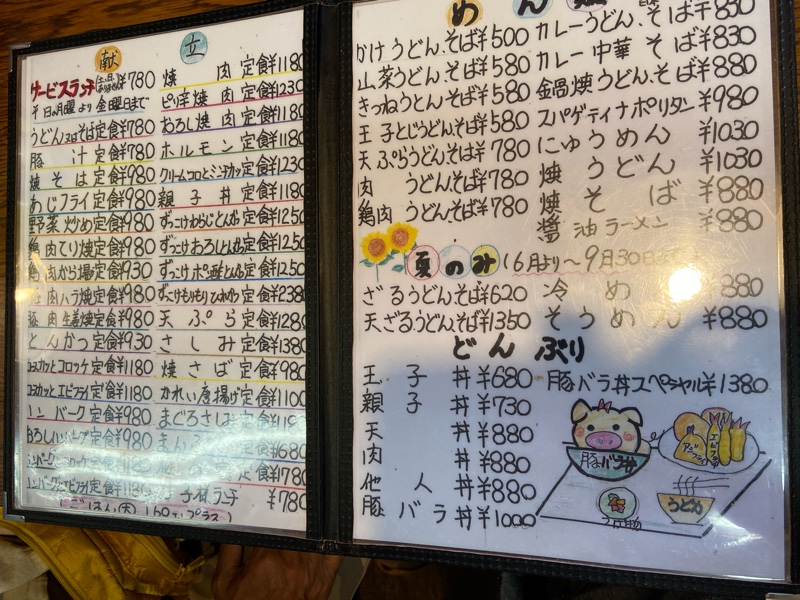 献立
サービスランチ ¥780
平日の月曜より金曜日まで
うどん又はそば定食¥780
豚汁定食¥780
焼そば定食¥980
あじフライ定食¥980
野菜炒め定食¥980
鶏肉てり焼定食¥980
鶏肉から揚定食¥930
肉バラ焼定食¥980
豚肉生姜焼定食¥980
とんかつ定食¥930
定食¥1180
定食¥1180
ハンバーグ定食¥980
定食¥980
定食
定食¥1180
ごはん(大)
焼肉定食¥1180
ピリ辛焼肉定食¥1230
おろし焼肉定食¥1180
ホルモン定食¥1180
クリームコロとミンチカツ定食¥1230
親子丼定食¥1180
ずっこけわらじとんかつ定食¥1250
ずっこけおろしとんかつ定食¥1250
ずっこけポン酢とんかつ定食¥1250
定食¥2380
天ぷら定食¥1280
さしみ定食¥1380
焼さば定食¥980
かれい唐揚げ定食¥1100
まぐろさしみ定食
¥680
定食¥1780
¥780
めん類
かけうどん.そば¥500
山菜うどん.そば¥580
きつねうどん.そば¥580
玉子とじうどん.そば¥580
天ぷらうどん.そば¥780
肉うどん.そば¥780
鶏肉うどん.そば¥780
カレーうどん.そば¥830
カレー中華そば¥830
鍋焼うどん.そば¥880
スパゲティナポリタン¥980
にゅうめん¥1030
焼うどん¥1030
焼そば¥880
醤油ラーメン¥880
夏のみ(6月より〜9月30日
ざるうどん.そば¥620
天ざるうどん.そば¥1350
冷めん¥880
そうめん¥880
どんぶり
玉子丼¥680
親子丼¥730
天丼¥880
肉丼¥880
他人丼¥880
豚バラ丼¥1000
豚バラ丼スペシャル¥1380
豚バラ丼
アジフライ
エビフライ
うどん